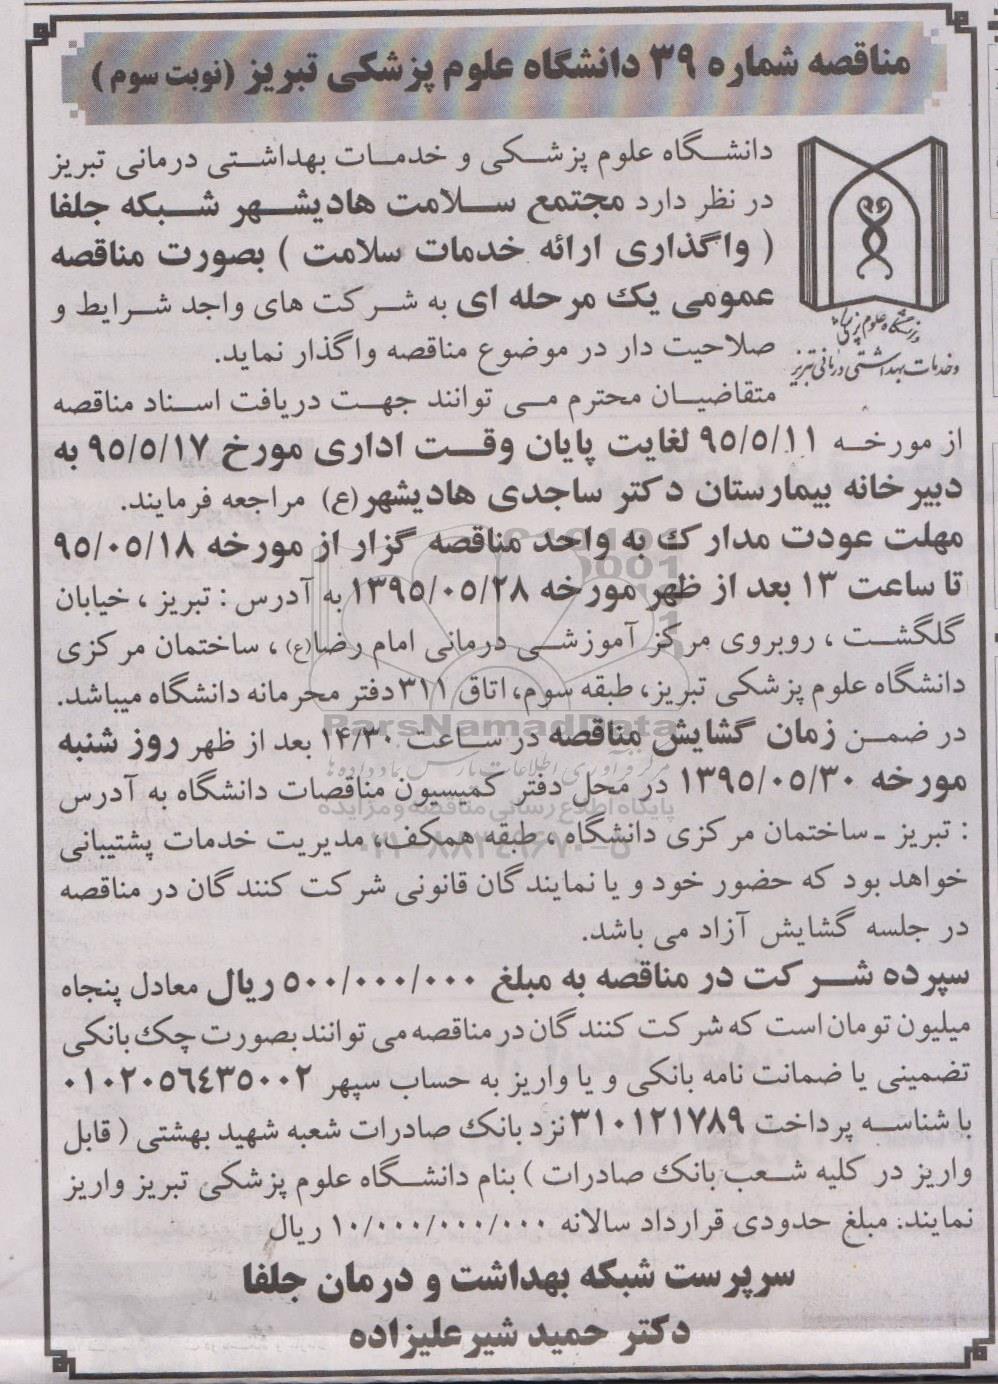 مناقصه شماره ۳۹ دانشگاه علوم پزشکی تبریز (نوبت سوم)
دانشگاه علوم پزشکی و خدمات بهداشتی درمانی تبریز
در نظر دارد مجتمع سلامت هادیشهر شبکه جلفا
( واگذاری ارائه خدمات سلامت ) بصورت مناقصه
عمومی یک مرحله ای به شرکت های واجد شرایط و
صلاحیت دار در موضوع مناقصه واگذار نماید.
دانشگاه علوم پزشکی
و خدمات بهداشتی درمانی تبریز
متقاضیان محترم می توانند جهت دریافت اسناد مناقصه
از مورخه ۹۵/۵/۱۱ لغایت پایان وقت اداری مورخ ۹۵/۵/۱۷ به
دبیرخانه بیمارستان دکتر ساجدی هادیشهر(ع) مراجعه فرمایند.
مهلت عودت مدارک به واحد مناقصه گزار از مورخه ۹۵/۰۵/۱۸
تا ساعت ۱۳ بعد از ظهر مورخه ۱۳۹۵/۰۵/۲۸ به آدرس : تبریز ، خیابان
گلگشت ، روبروی مرکز آموزشی درمانی امام رضا(ع) ، ساختمان مرکزی
دانشگاه علوم پزشکی تبریز، طبقه سوم، اتاق ۳۱۱ دفتر محرمانه دانشگاه میباشد.
ParsNamadData
در ضمن زمان گشایش مناقصه در ساعت ۱۴/۳۰ بعد از ظهر روز شنبه
مرکز فرآوری اطلاعات پارس نماد داده ها
مورخه ۱۳۹۵/۰۵/۳۰ در محل دفتر کمیسیون مناقصات دانشگاه به آدرس
پایگاه اطلاع رسانی مناقصه و مزایده
: تبریز ـ ساختمان مرکزی دانشگاه ، طبقه همکف، مدیریت خدمات پشتیبانی
۰۲۱-۸۸۳۴۹۶۷۰-۵
خواهد بود که حضور خود و یا نمایندگان قانونی شرکت کنندگان در مناقصه
در جلسه گشایش آزاد می باشد.
سپرده شرکت در مناقصه به مبلغ ۵۰۰/۰۰۰/۰۰۰ ریال معادل پنجاه
میلیون تومان است که شرکت کنندگان در مناقصه می توانند بصورت چک بانکی
تضمینی یا ضمانت نامه بانکی و یا واریز به حساب سپهر ۰۱۰۲۰۵۶۴۳۵۰۰۲
با شناسه پرداخت ۳۱۰۱۲۱۷۸۹ نزد بانک صادرات شعبه شهید بهشتی ( قابل
واریز در کلیه شعب بانک صادرات ) بنام دانشگاه علوم پزشکی تبریز واریز
نمایند. مبلغ حدودی قرارداد سالانه ۱۰/۰۰۰/۰۰۰/۰۰۰ ریال
سرپرست شبکه بهداشت و درمان جلفا
دکتر حمید شیرعلیزاده